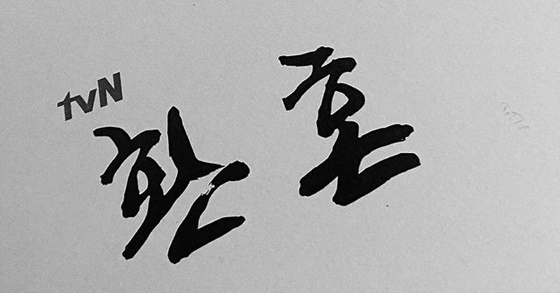 tvN
환혼